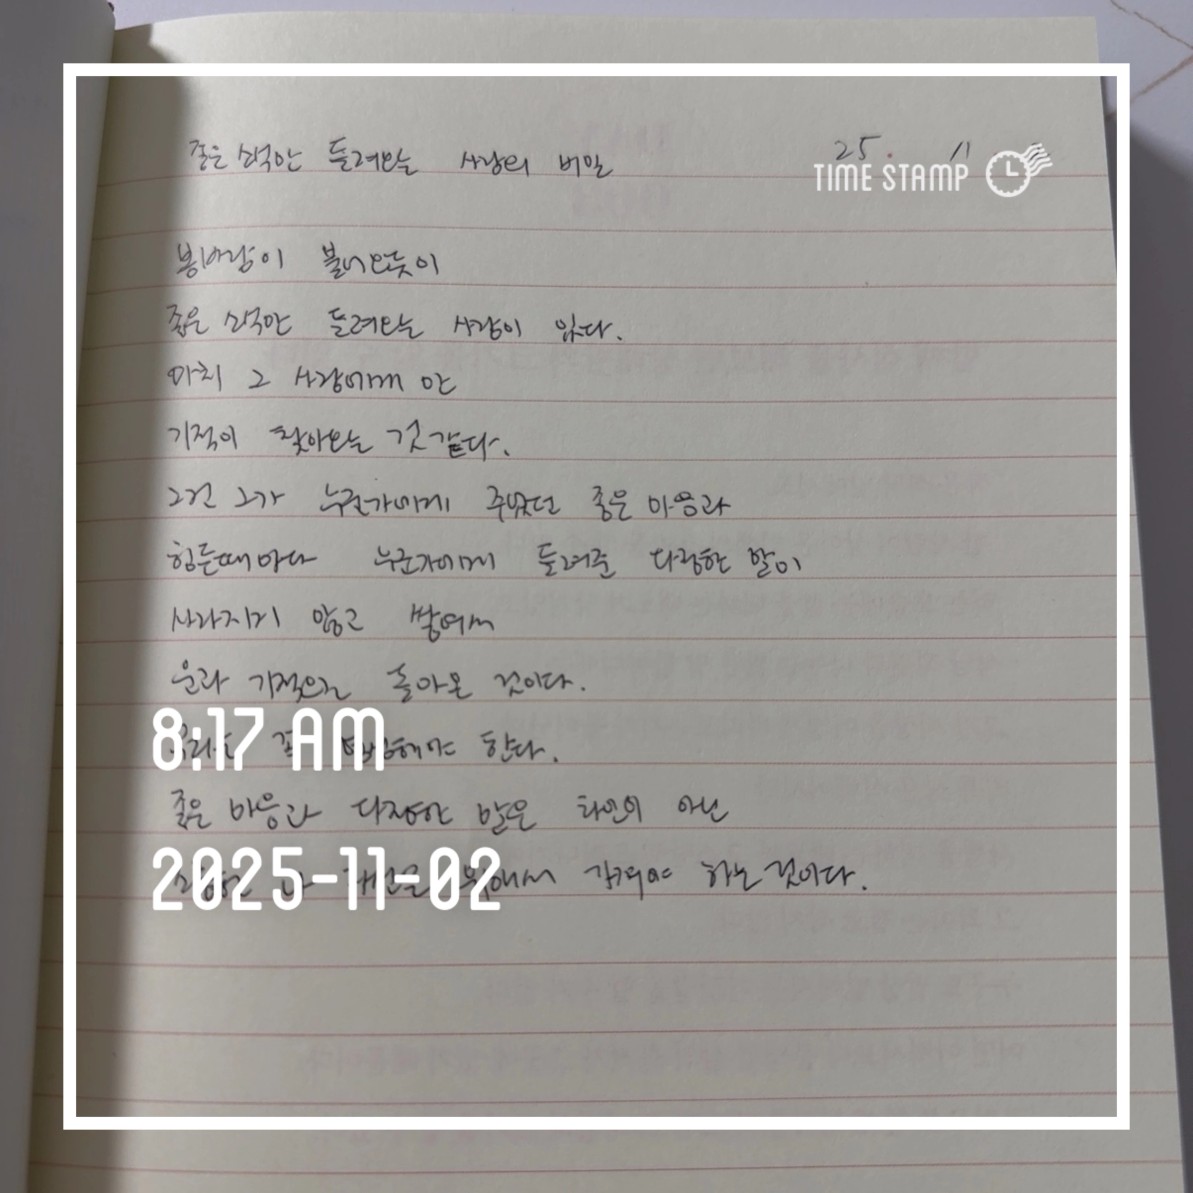 좋은 소식만 들려오는 사람의 비밀
25. 11
TIME STAMP
봄바람이 불어오듯이
좋은 소식만 들려오는 사람이 있다.
마치 그 사람에게만
기적이 찾아오는 것 같다.
그건 그가 누군가에게 주었던 좋은 마음과
힘든때마다 누군가에게 들려준 다정한 말이
사라지지 않고 쌓여서
운과 기적으로 돌아온 것이다.
8:17 AM
우리는 꼭 해야 한다.
좋은 마음과 다정한 말은 타인이 아닌
2025-11-02
위해서 가져야 하는 것이다.